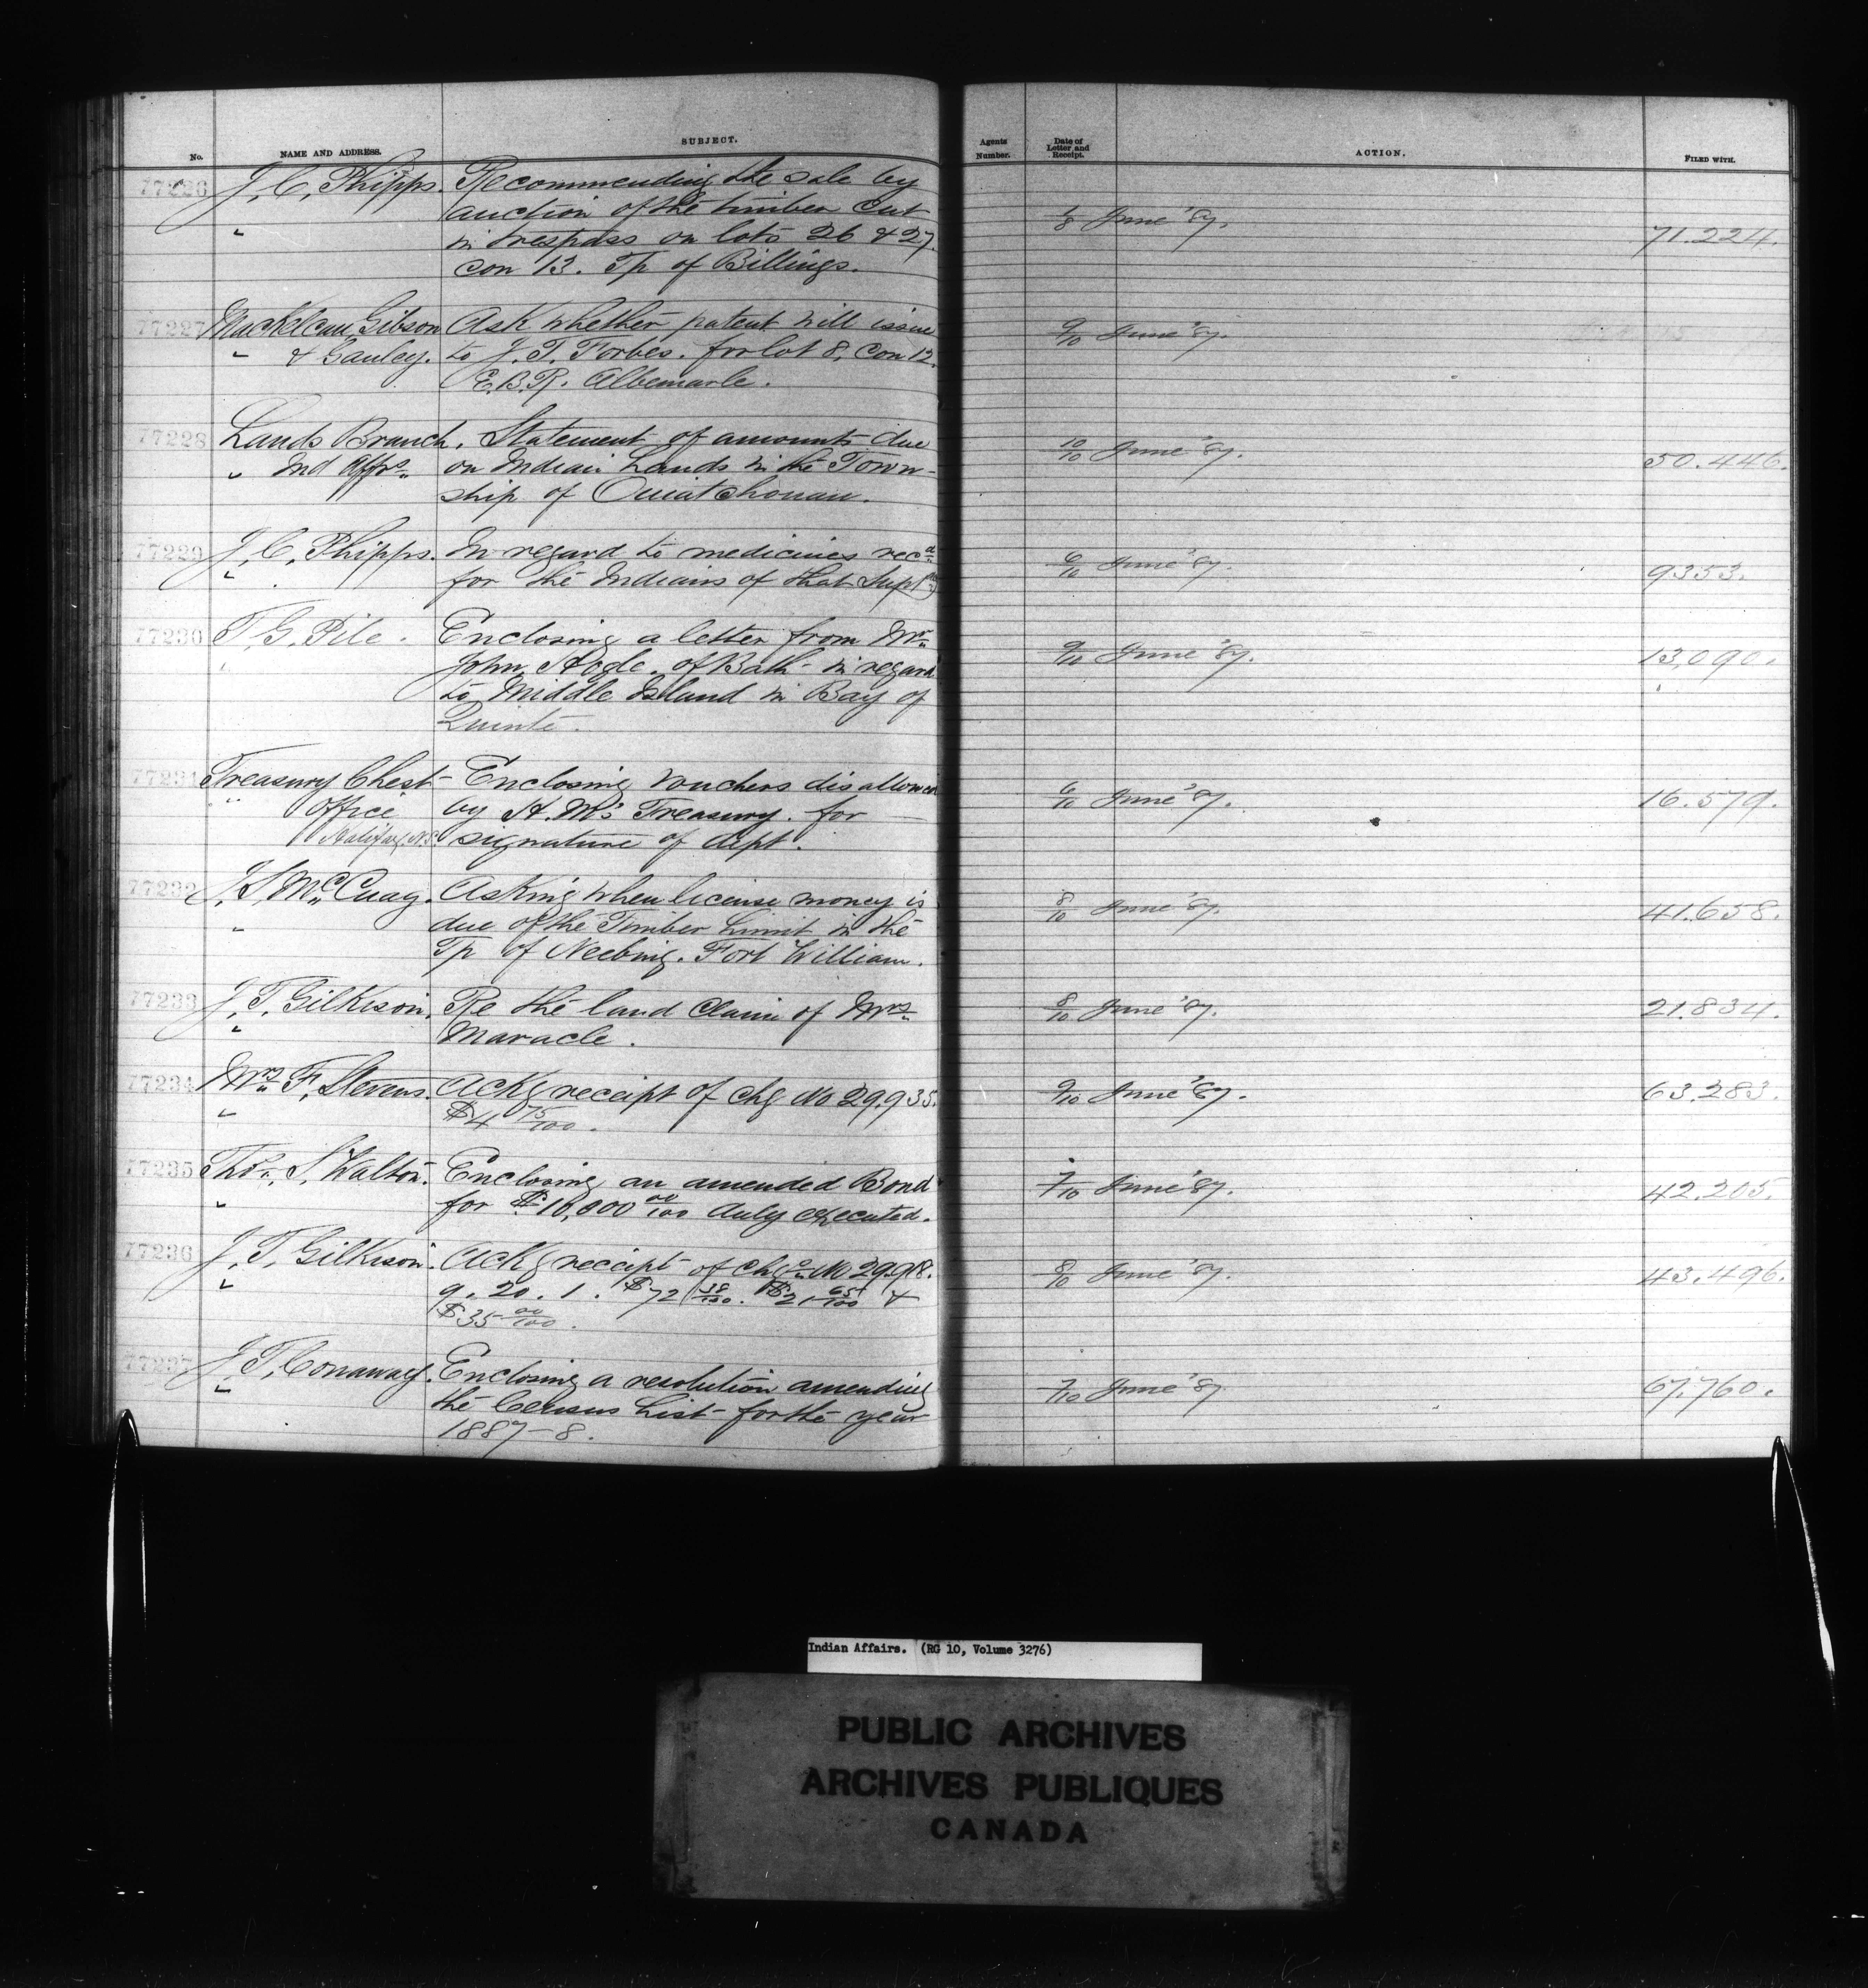 No. NAME AND ADDRESS. SUBJECT. Agents Number. Date of Letter and Receipt. ACTION. FILED WITH.
77226 J. C. Phipps. Recommending the sale by
auction of the timber cut 1/8 June '87.
" in trespass on lots 26 & 27. 71.224.
Con 13. Tp of Billings.
77227 Mackelcan, Gibson Ask whether patent will issue 9/10 June '87.
" & Gauley. to J. T. Forbes. for lot 8, Con 12.
E.B.R. Albemarle.
77228 Lands Branch. Statement of amounts due 10/10 June '87.
" Ind Affrs. on Indian Lands in the Town- 50.446.
ship of Ouiatchouan.
77229 J. C. Phipps. In regard to medicines recd 6/10 June '87.
" for the Indians of that Supt 9353.
77230 T. G. Pile. Enclosing a letter from Mr.
" John Hogle. of Bath - in regard 9/10 June '87. 13,090.
to Middle Island in Bay of
Quinte.
77231 Treasury Chest Enclosing vouchers disallowed
" Office by H. M's Treasury. for 6/11 June '87. 16.579.
Halifax, N.S. signature of dept.
77232 J. S. McCuag. Asking when license money is 8/10 June '87.
" due of the Timber Limit in the 41.658.
Tp of Neebing. Fort William.
77233 J. T. Gilkison. Re the land claim of Mrs. 8/10 June '87. 21.834.
" Maracle.
77234 Mrs. F. Stevens. Ackg receipt of chq No 29.935. 9/10 June '87. 63.283.
" $4 75/100.
77235 Thos. S. Walton. Enclosing an amended Bond 7/10 June '87.
" for $10,000 00/100 duly executed. 42.205.
77236 J. T. Gilkison. Ackg receipt of chqs No 29.918. 8/10 June '87. 43.496.
" 9. 20. 1. $72 38/100. $21 65/100 &
$35 00/100.
77237 J. T. Conaway. Enclosing a resolution amending 7/10 June '87 67.760.
" the Census List - for the year
1887-8.
Indian Affairs. (RG 10, Volume 3276)
PUBLIC ARCHIVES
ARCHIVES PUBLIQUES
CANADA